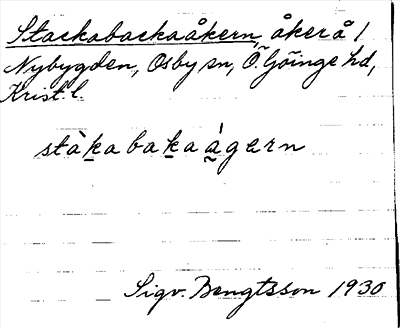 Stackabackaåkern, åker å 1
Nybygden, Osby sn, Ö. Göinge hd,
Krist. l.
stàkabakaágern
Sigv. Bengtsson 1930